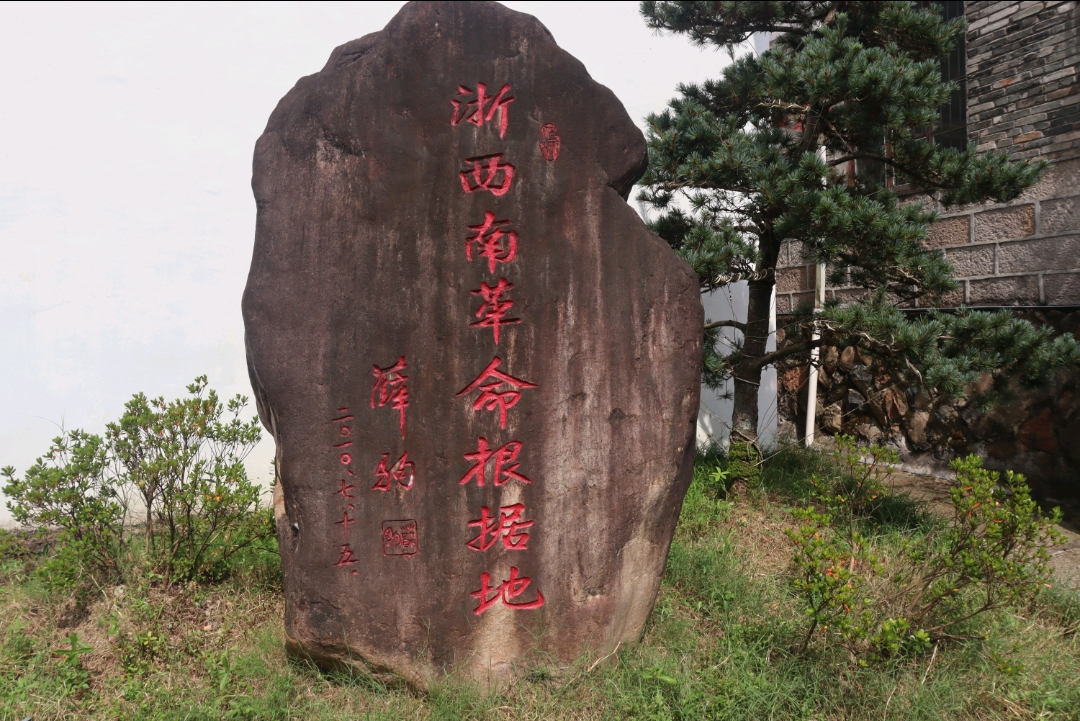 浙西南革命根据地
薛驹
二〇一〇、七、十五、